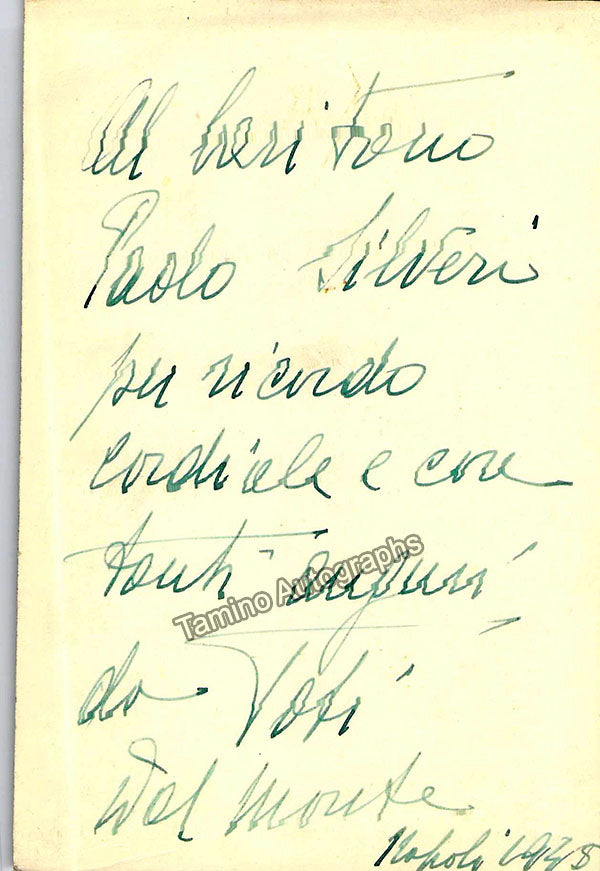 Al baritono
Paolo Silveri
per ricordo
cordiale e con
tanti auguri
Tamino Autographs
da Toti
Dal Monte
Napoli